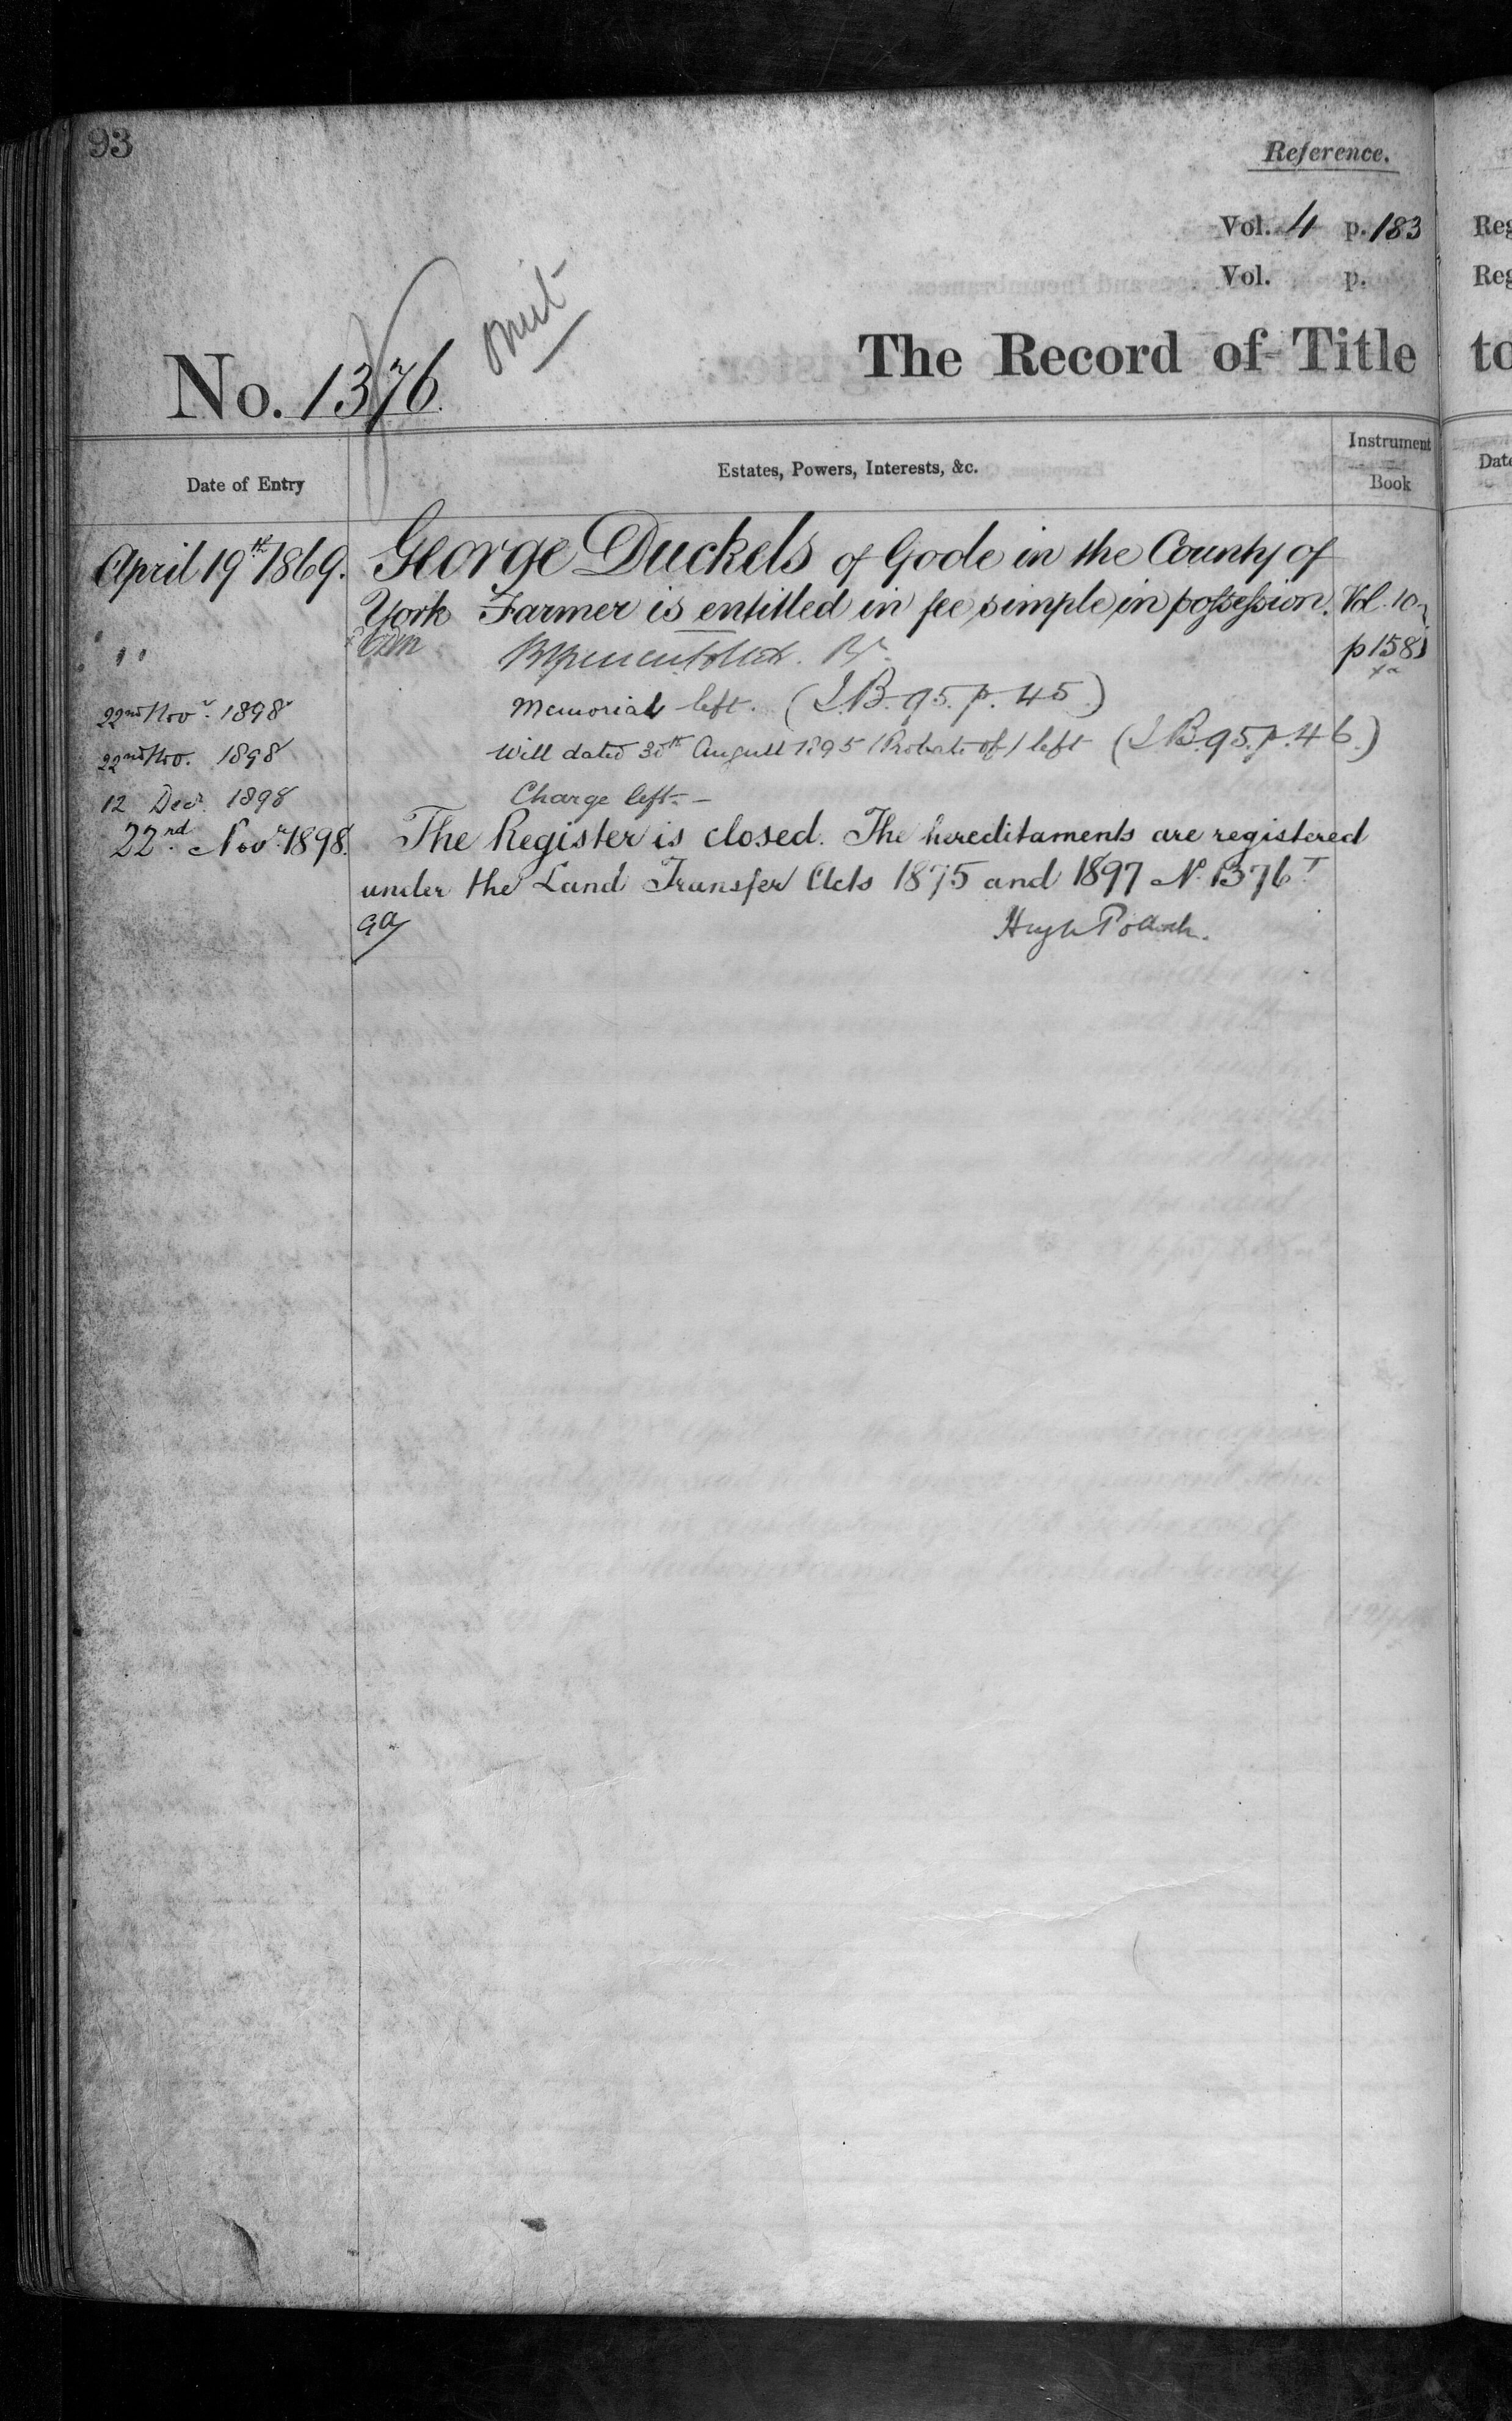 93
Reference.
Vol. 4 p. 183
Vol. p.
omit
No. 1376.
The Record of Title
Date of Entry
Estates, Powers, Interests, &c.
Instrument
Book
April 19th 1869. George Duckels of Gode in the County of
York Farmer is entitled in fee simple in possession. Vol. 10
" p 158
22nd Novr. 1898 Memorial left. (I.B. 95. p. 45.)
22nd Nov. 1898 Will dated 30th August 1895 (Probate of) left (I.B. 95. p. 46.)
12 Decr. 1898 Charge left. —
22nd. Novr. 1898. The Register is closed. The hereditaments are registered
under the Land Transfer Acts 1875 and 1897 No. 1376T
Hugh Pollock.
Reg
Reg
to
Date